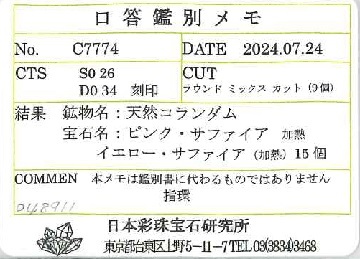 口答鑑別メモ
No. C7774 DATE 2024.07.24
CTS S0 26 CUT
D0 34 刻印 ラウンド ミックス カット (9個)
結果 鉱物名：天然コランダム
宝石名：ピンク・サファイア 加熱
イエロー・サファイア (加熱) 15個
COMMEN 本メモは鑑別書に代わるものではありません
指環
048911
日本彩珠宝石研究所
東京都台東区上野5-11-7 TEL 03(3834)3468